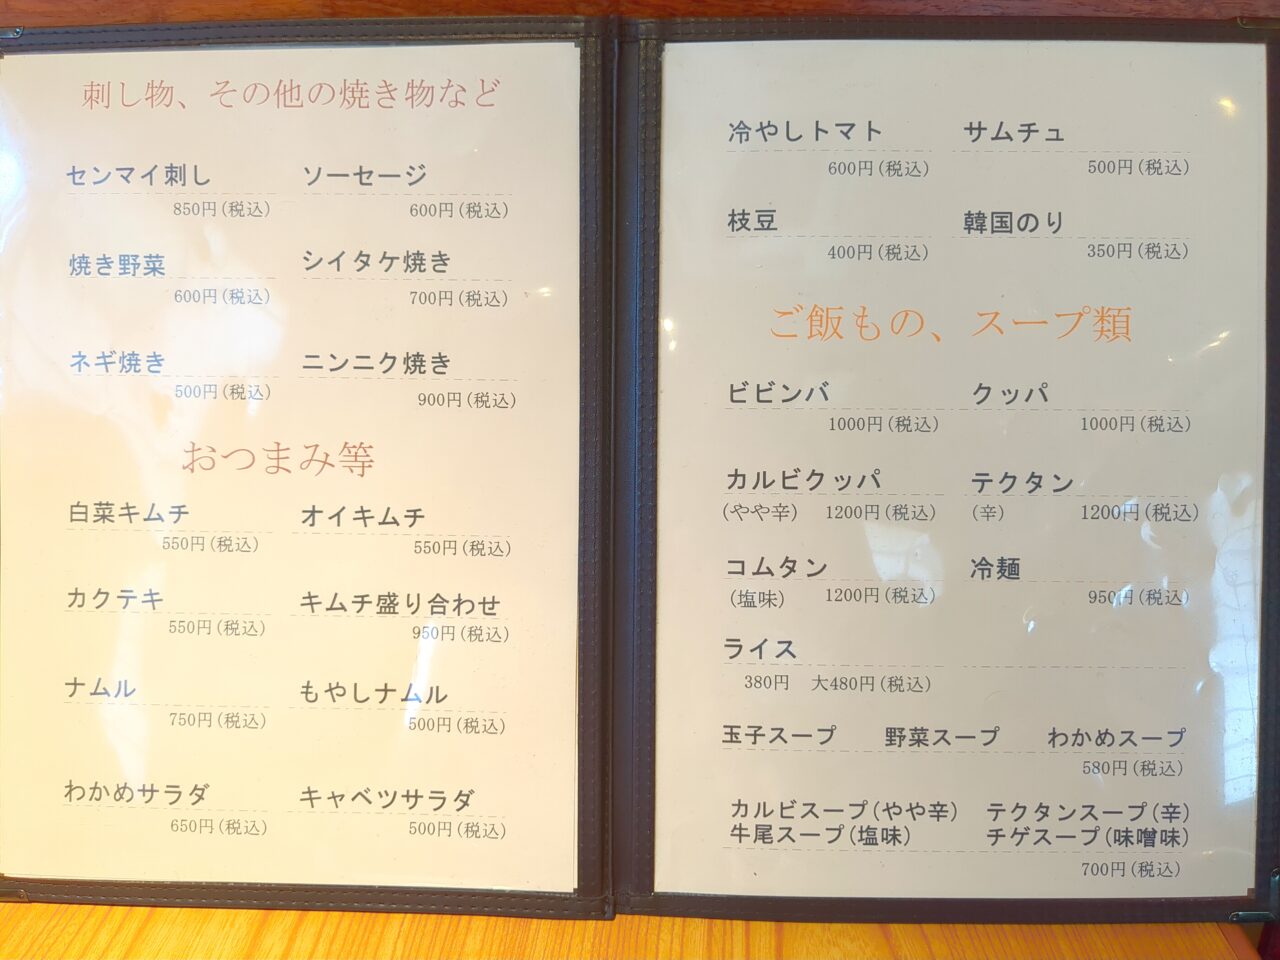 刺し物、その他の焼き物など
センマイ刺し ソーセージ
850円(税込) 600円(税込)
焼き野菜 シイタケ焼き
600円(税込) 700円(税込)
ネギ焼き ニンニク焼き
500円(税込) 900円(税込)
おつまみ等
白菜キムチ オイキムチ
550円(税込) 550円(税込)
カクテキ キムチ盛り合わせ
550円(税込) 950円(税込)
ナムル もやしナムル
750円(税込) 500円(税込)
わかめサラダ キャベツサラダ
650円(税込) 500円(税込)
冷やしトマト サムチュ
600円(税込) 500円(税込)
枝豆 韓国のり
400円(税込) 350円(税込)
ご飯もの、スープ類
ビビンバ クッパ
1000円(税込) 1000円(税込)
カルビクッパ テクタン
(やや辛) 1200円(税込) (辛) 1200円(税込)
コムタン 冷麺
(塩味) 1200円(税込) 950円(税込)
ライス
380円 大480円(税込)
玉子スープ 野菜スープ わかめスープ
580円(税込)
カルビスープ(やや辛) テクタンスープ(辛)
牛尾スープ(塩味) チゲスープ(味噌味)
700円(税込)